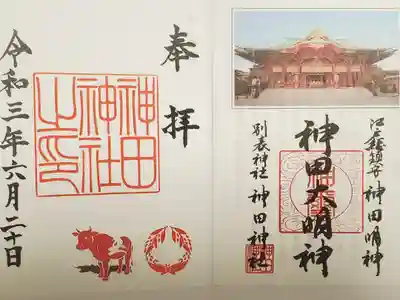 江戸総鎮守 神田明神
神田大明神
別表神社 神田神社
奉拝
神田
神社
之印
令和三年六月二十日